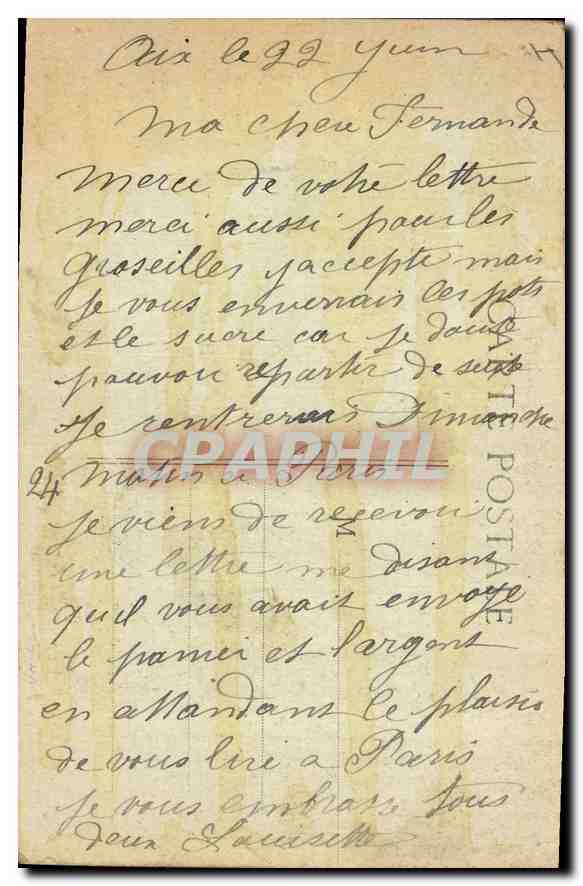 Aix le 22 Juin
Ma chere Fernande
Merci de votre lettre
merci aussi pour les
groseilles j'accepte mais
je vous enverrais les pots
et le sucre car je doute
pouvoir repartir de suite
Je rentrerais Dimanche
24 matin a Paris
je viens de recevoir
une lettre me disant
quil vous avait envoye
le panier et l'argent
en attandant le plaisir
de vous lire a Paris
je vous embrasse tous
deux Louisette
CARTE POSTALE
M
CPAPHIL